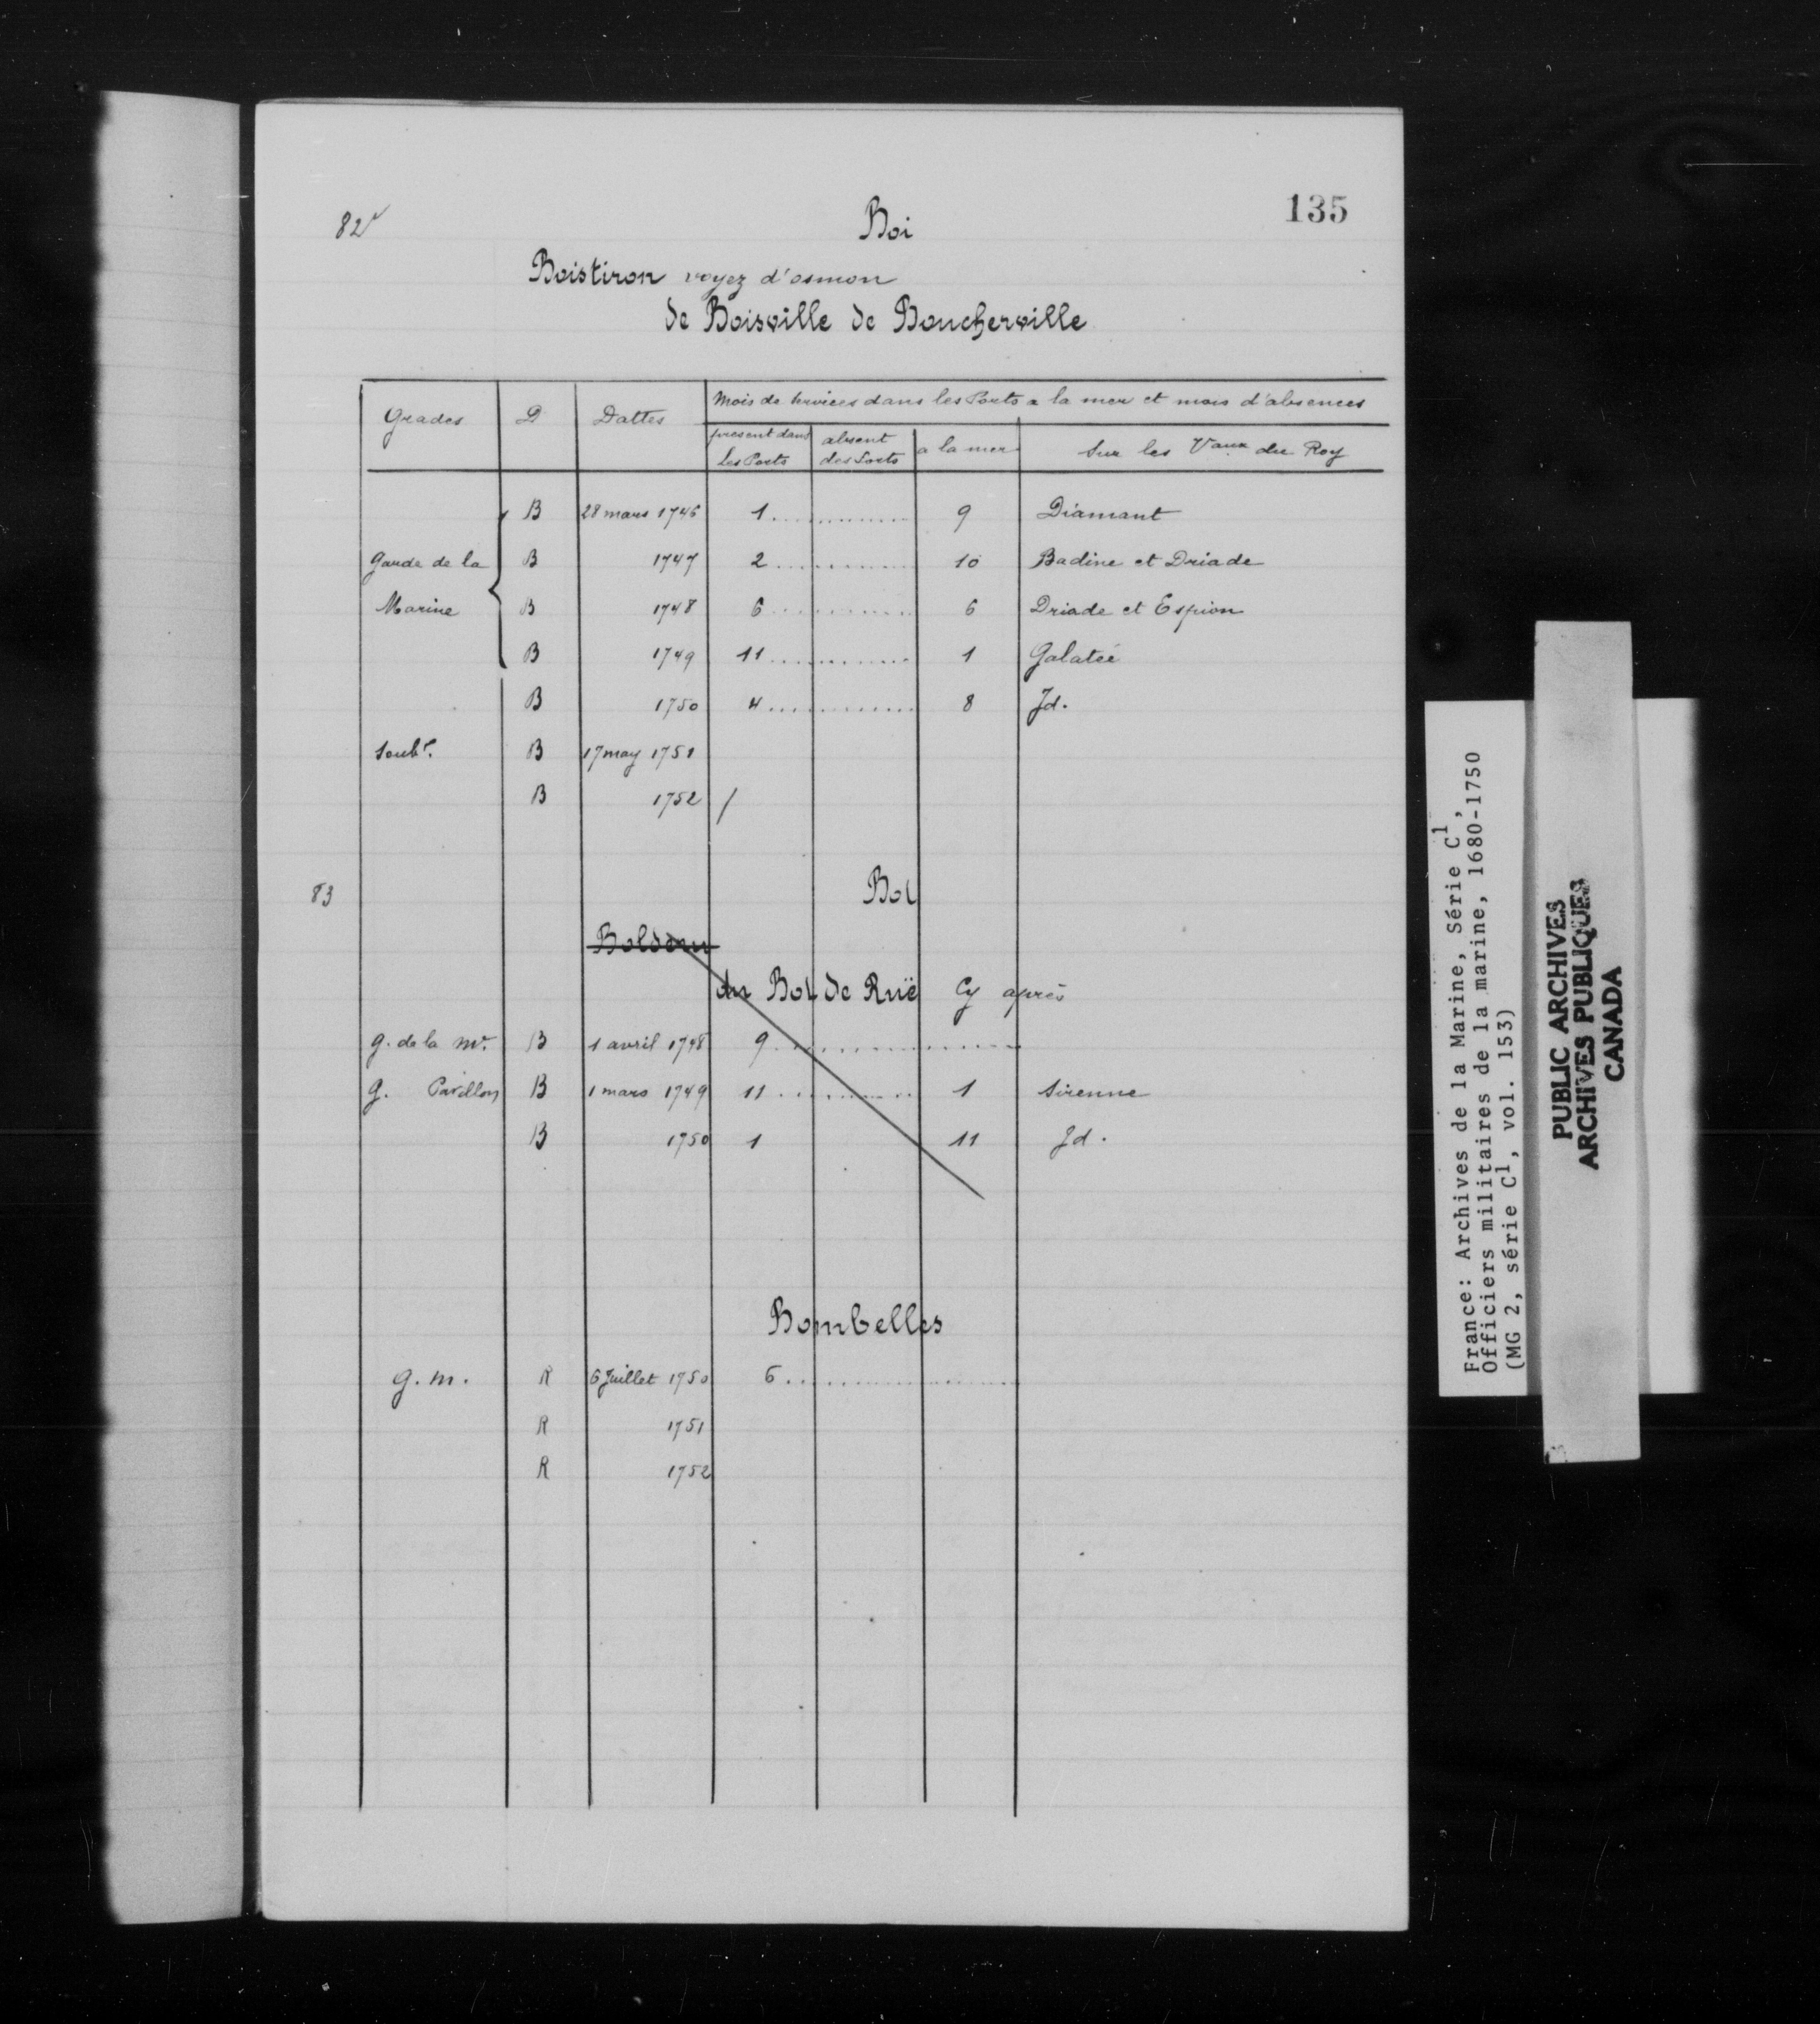 135
82v Boi
Boistiron voyez d'osmon
de Boisville de Boucherville
Grades D Dattes Mois de services dans les Ports a la mer et mois d'absences
present dans les Ports absent des Ports a la mer Sur les Vaux du Roy
B 28 mars 1746 1 ............. 9 Diamant
Garde de la B 1747 2 ............. 10 Badine et Driade
Marine B 1748 6 ............. 6 Driade et Espion
B 1749 11 ............. 1 Galatée
B 1750 4 ............. 8 Jd.
B 17 may 1751
B 1752 /
83 Bol
du Bol de Ruë Cy après
g. de la mr. B 1 avril 1748 9 .............
G. Pavillon B 1 mars 1749 11 ............. 1 Sirenne
B 1750 1 11 Jd.
Bombelles
g. m. R 6 Juillet 1750 6 .............
R 1751
R 1752
France: Archives de la Marine, Série C1,
Officiers militaires de la marine, 1680-1750
(MG 2, série C1, vol. 153)
PUBLIC ARCHIVES
ARCHIVES PUBLIQUES
CANADA